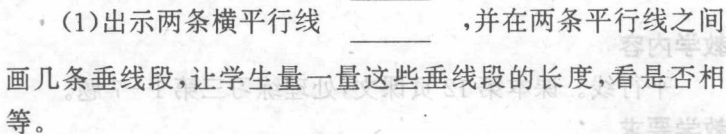 (1)出示两条横平行线 ,并在两条平行线之间
画几条垂线段,让学生量一量这些垂线段的长度,看是否相
等。